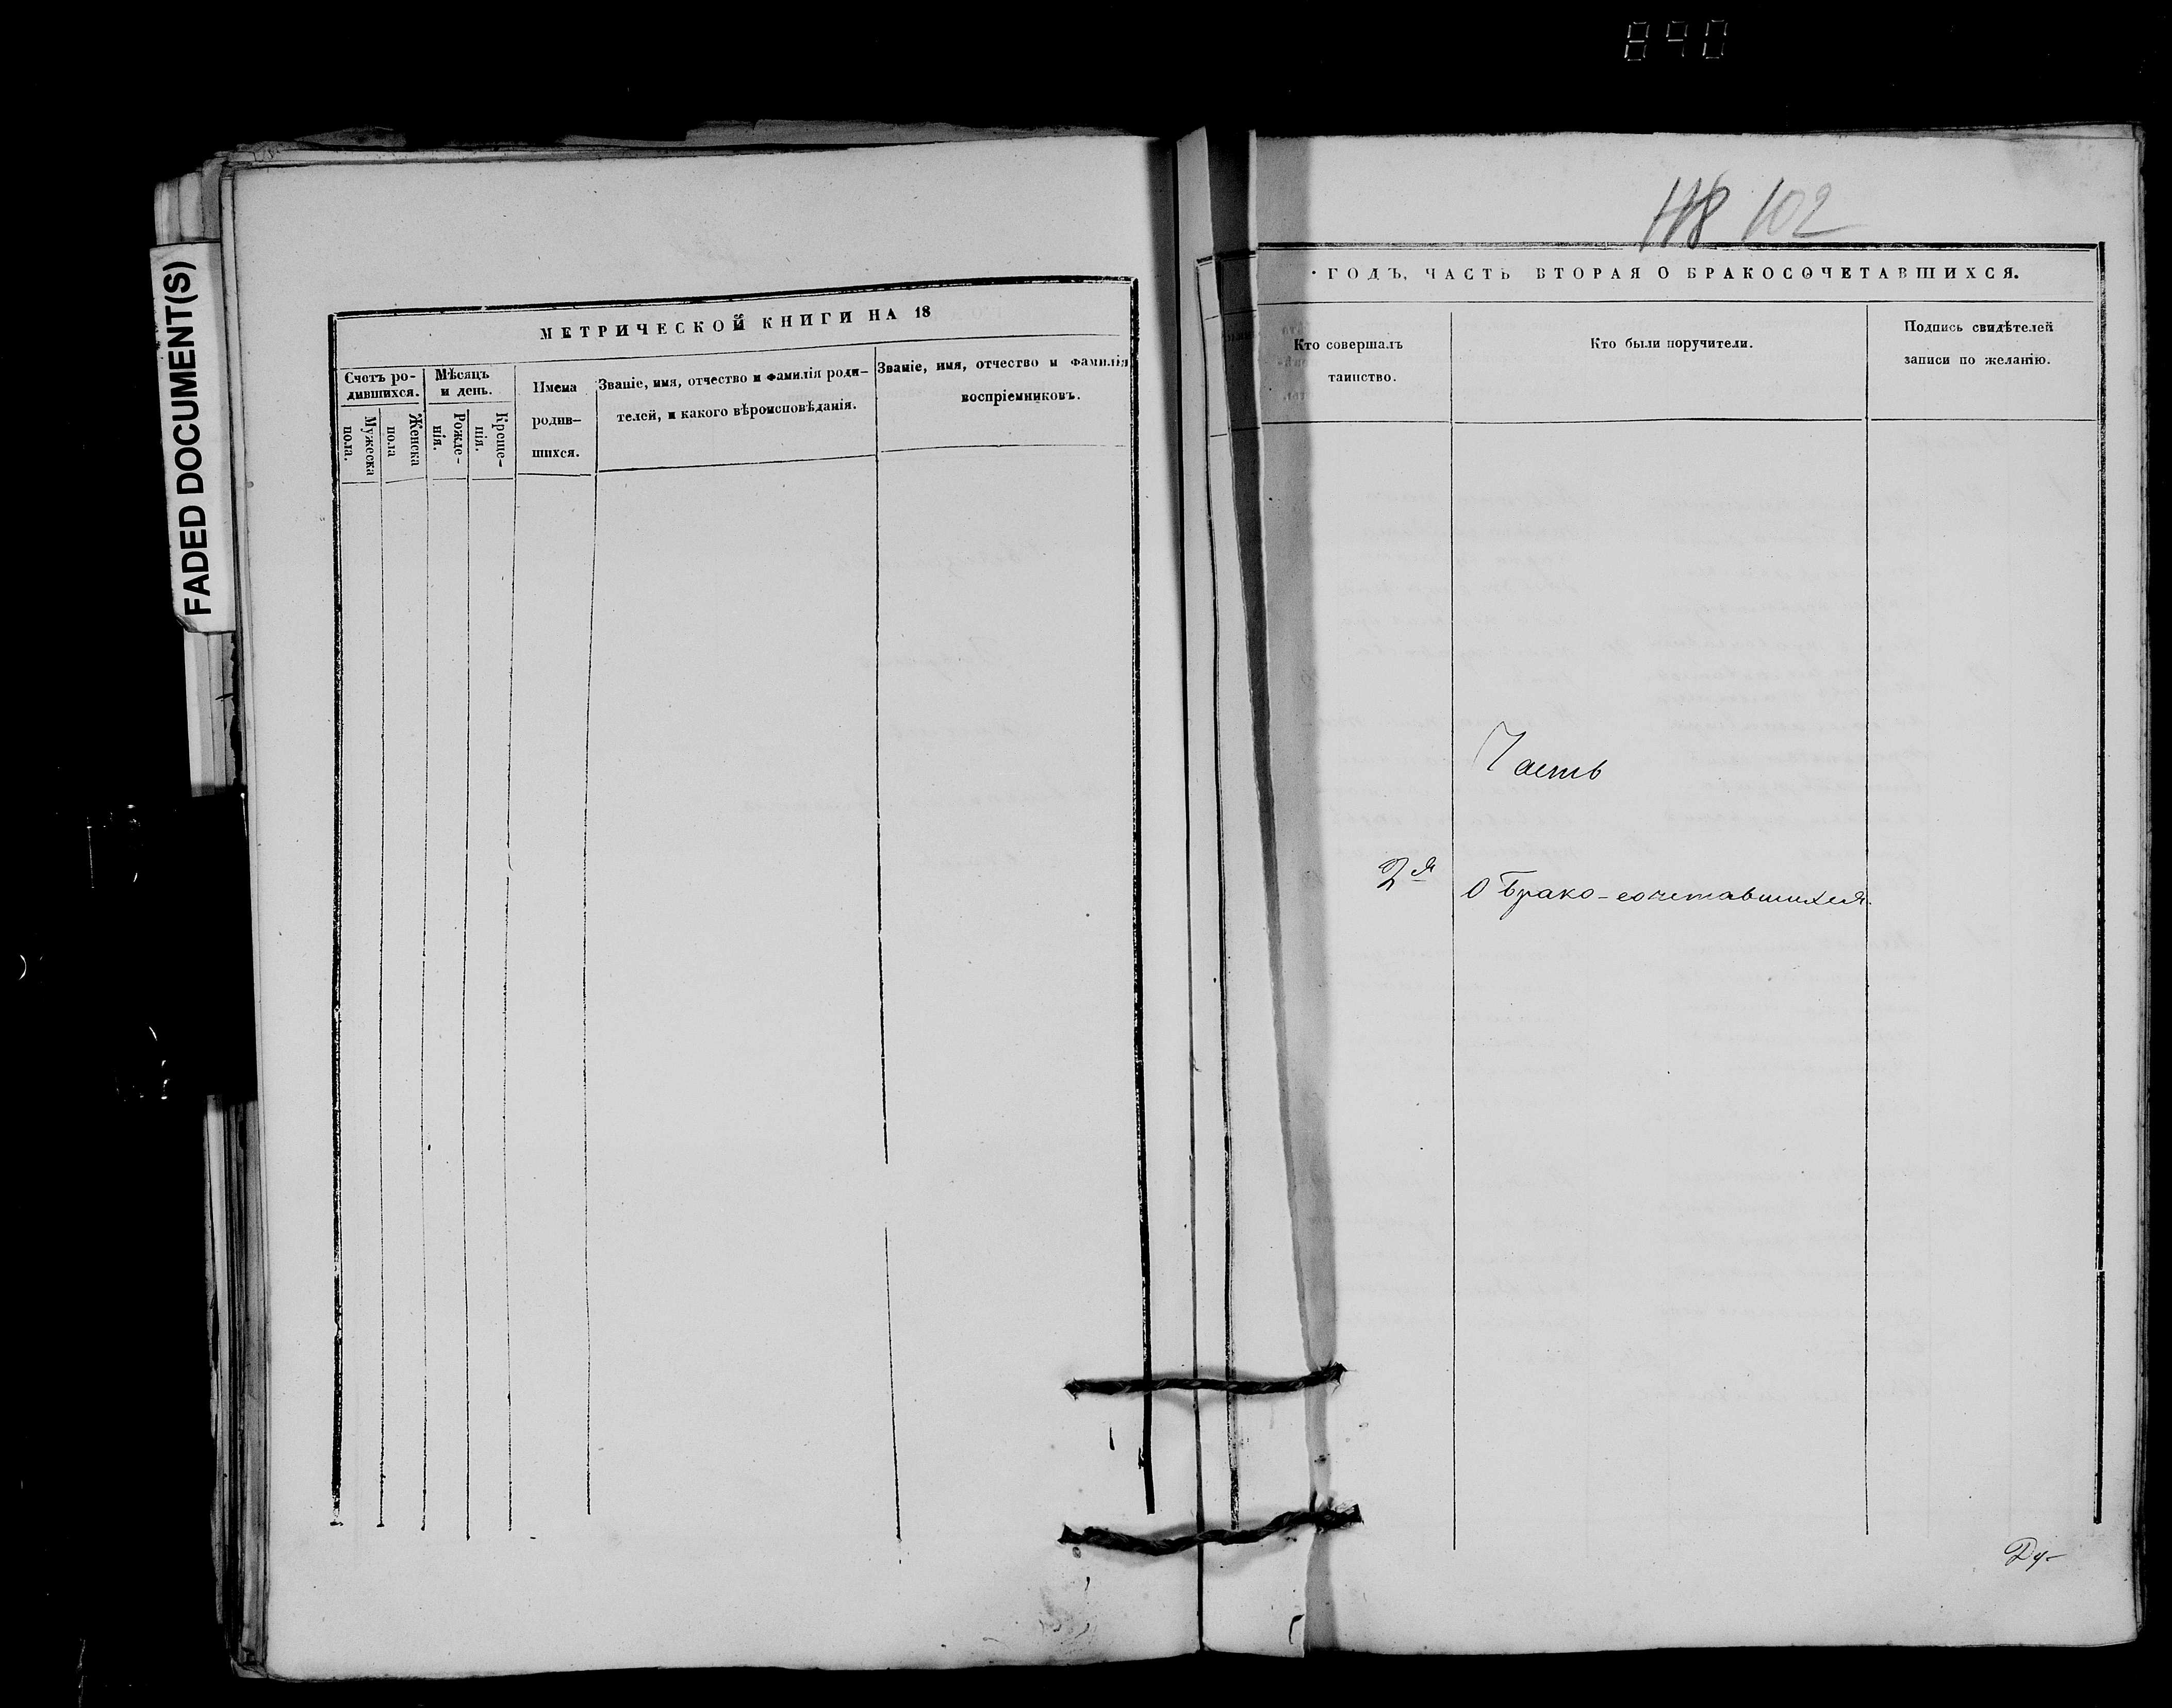 890
FADED DOCUMENT(S)
МЕТРИЧЕСКОЙ КНИГИ НА 18
Счетъ ро-
дившихся.
Мужеска
пола.
Женска
пола
Мѣсяцъ
и день.
Рожде-
нія.
Креще-
нія.
Имена
родив-
шихся.
Званіе, имя, отчество и фамилія роди-
телей, и какого вѣроисповѣданія.
Званіе, имя, отчество и фамилія
воспріемниковъ.
102
ГОДЪ, ЧАСТЬ ВТОРАЯ О БРАКОСОЧЕТАВШИХСЯ.
Кто совершалъ
таинство.
Кто были поручители.
Подпись свидѣтелей
записи по желанію.
Часть
2я
О Брако-сочетавшихся.
Ду-